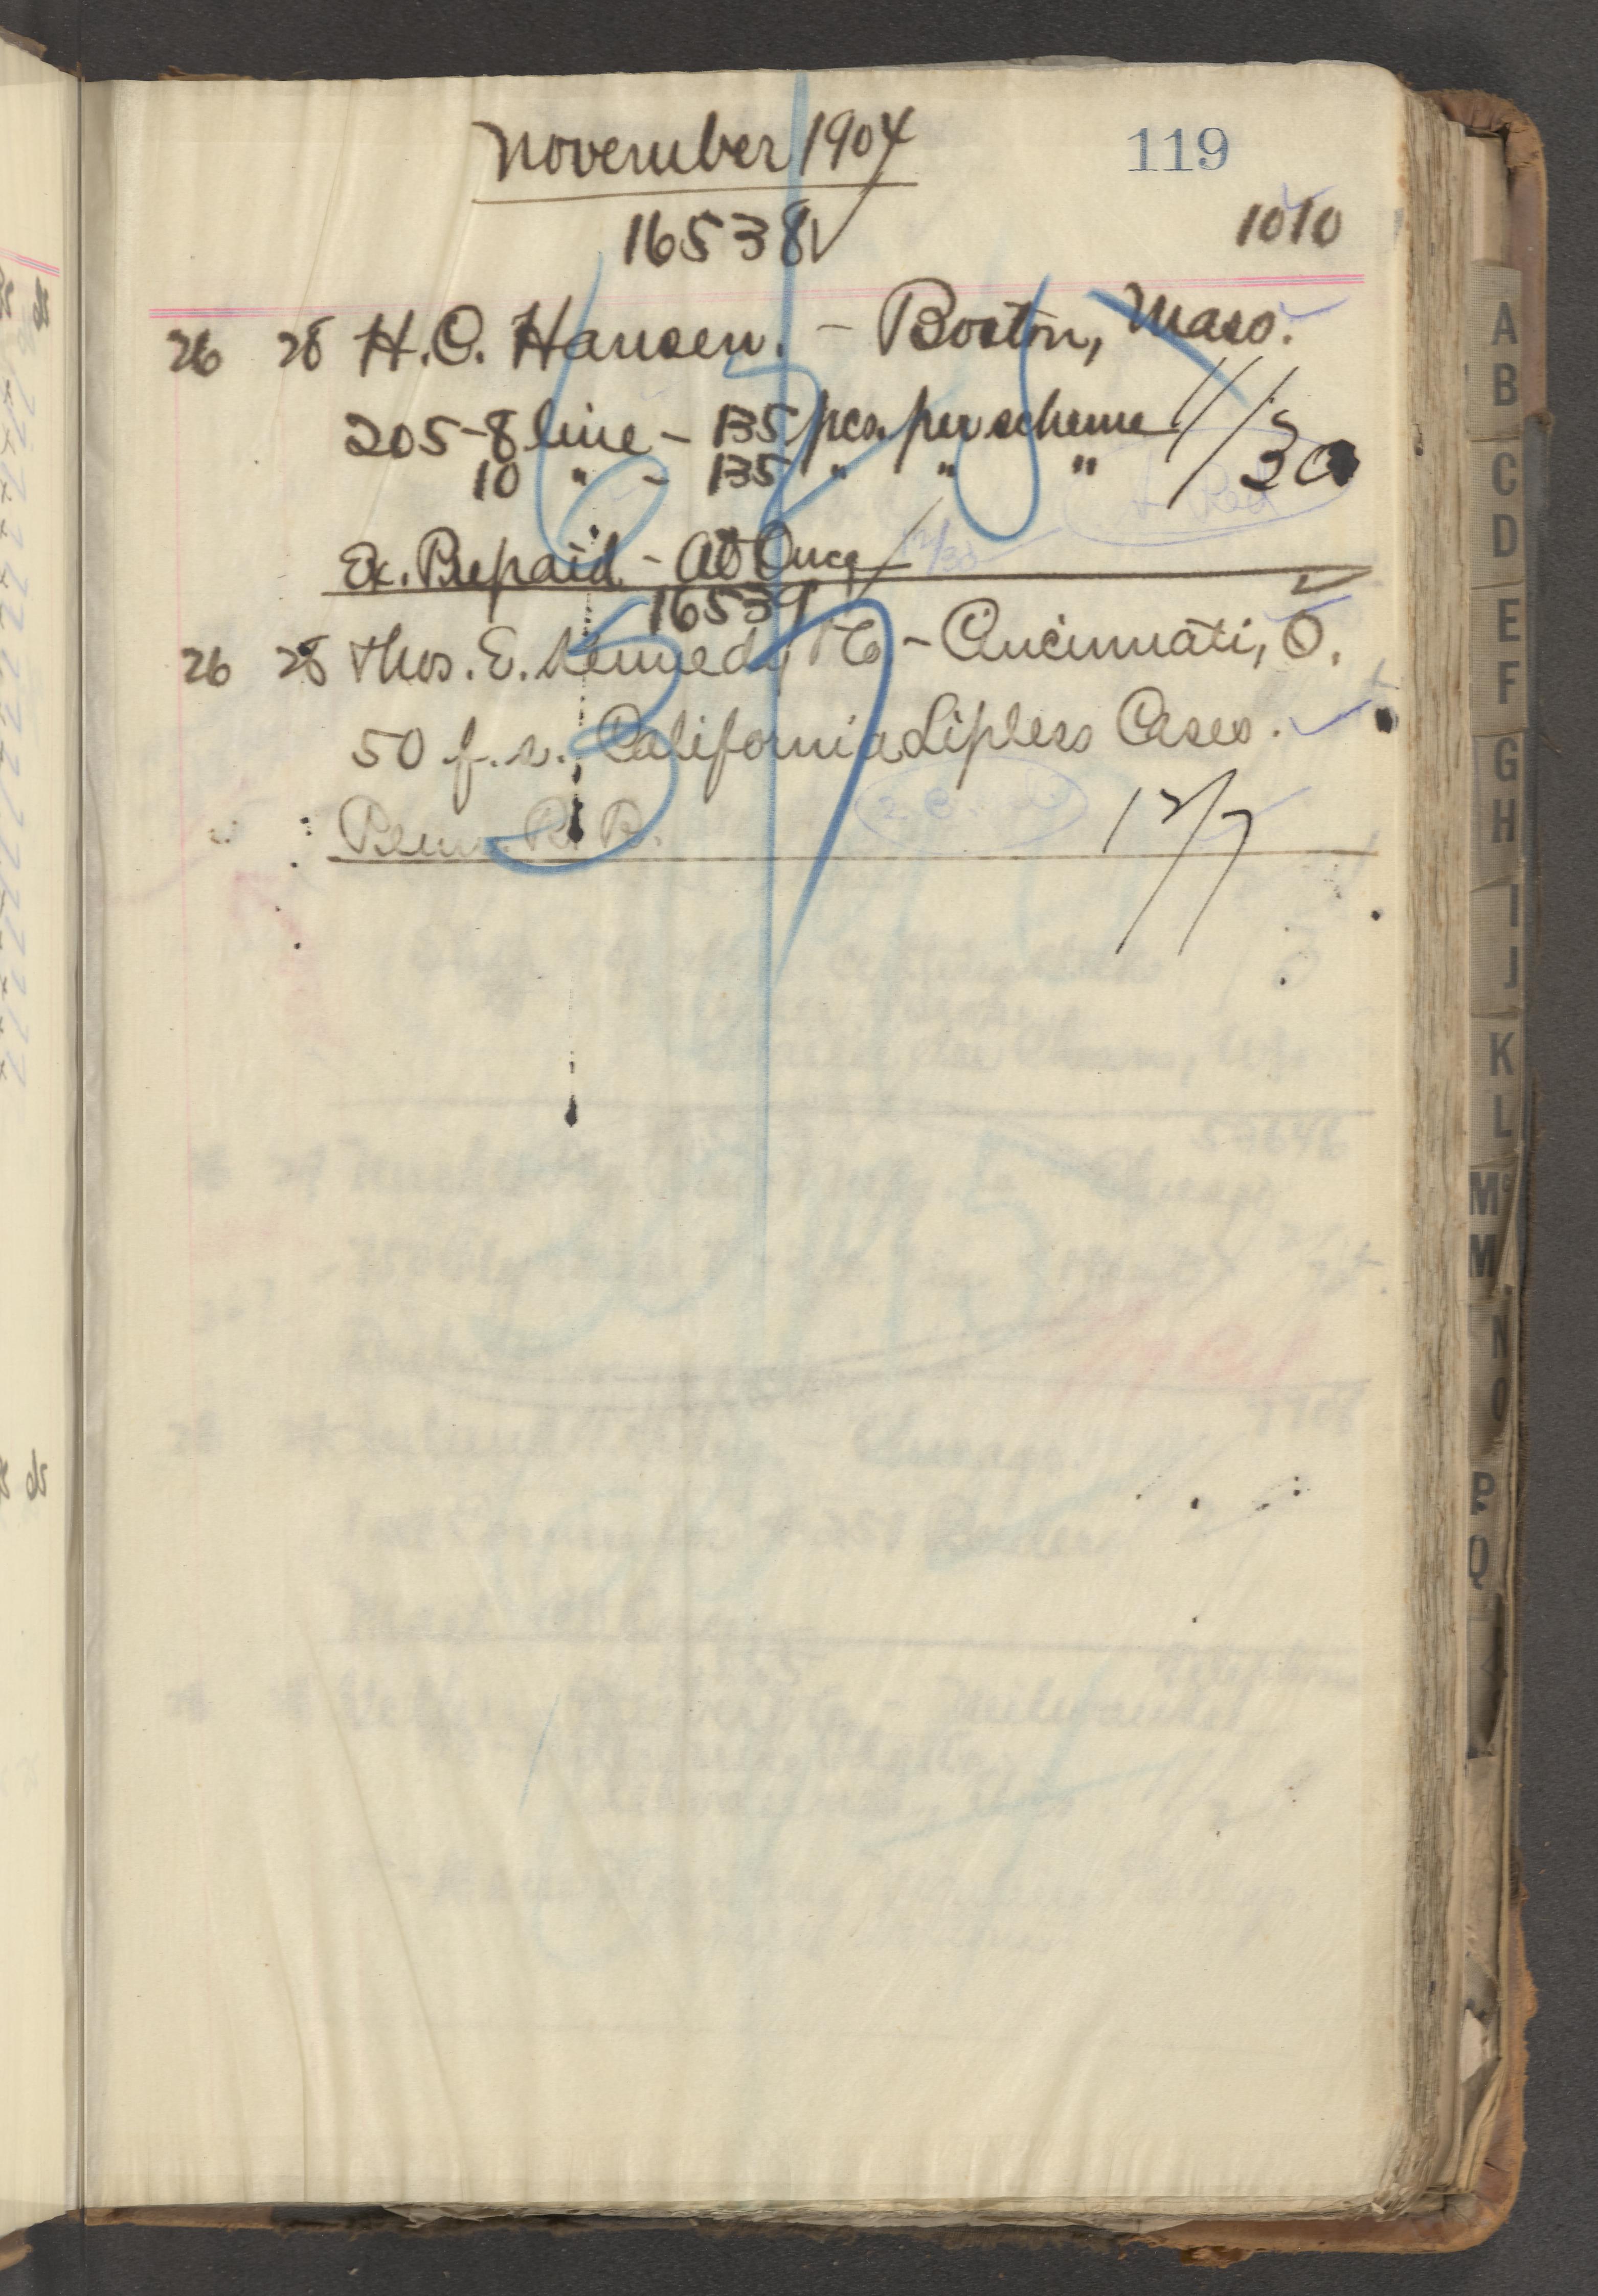 November 1904
119
16538
1010
26 28 H.C. Hansen. - Boston, Mass.
205-8 line - 135 pcs. per scheme
10 " - 135 " " "
11/30
Ex. Prepaid - At Once
16539
26 28 Thos. E. Kennedy & Co - Cincinnati, O.
50 f.s. California Lipless Cases.
Penn. R. R.
12/7
A
B
C
D
E
F
G
H
I
J
K
L
Mc
M
N
O
P
Q